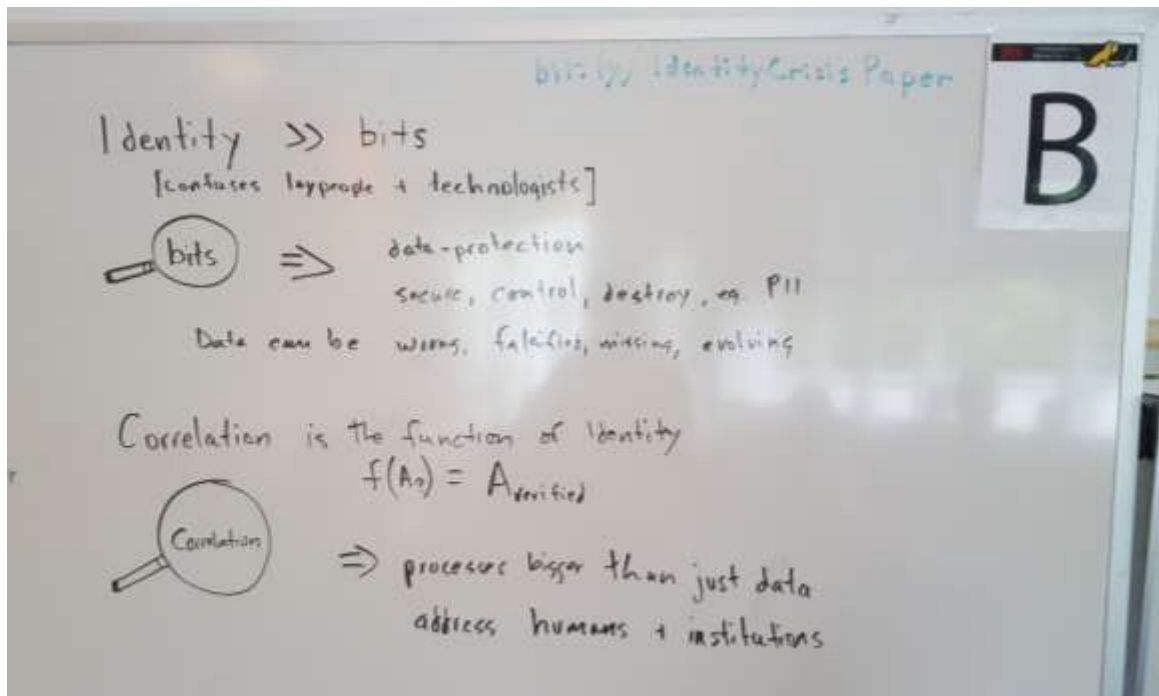 bit.ly/IdentityCrisisPaper
B
Identity >> bits
[confuses laypeople + technologists]
bits ⇒ data-protection
secure, control, destroy, eg. PII
Data can be wrong, falsified, missing, evolving
Correlation is the function of Identity
f(A?) = A verified
Correlation ⇒ processes bigger than just data
address humans + institutions